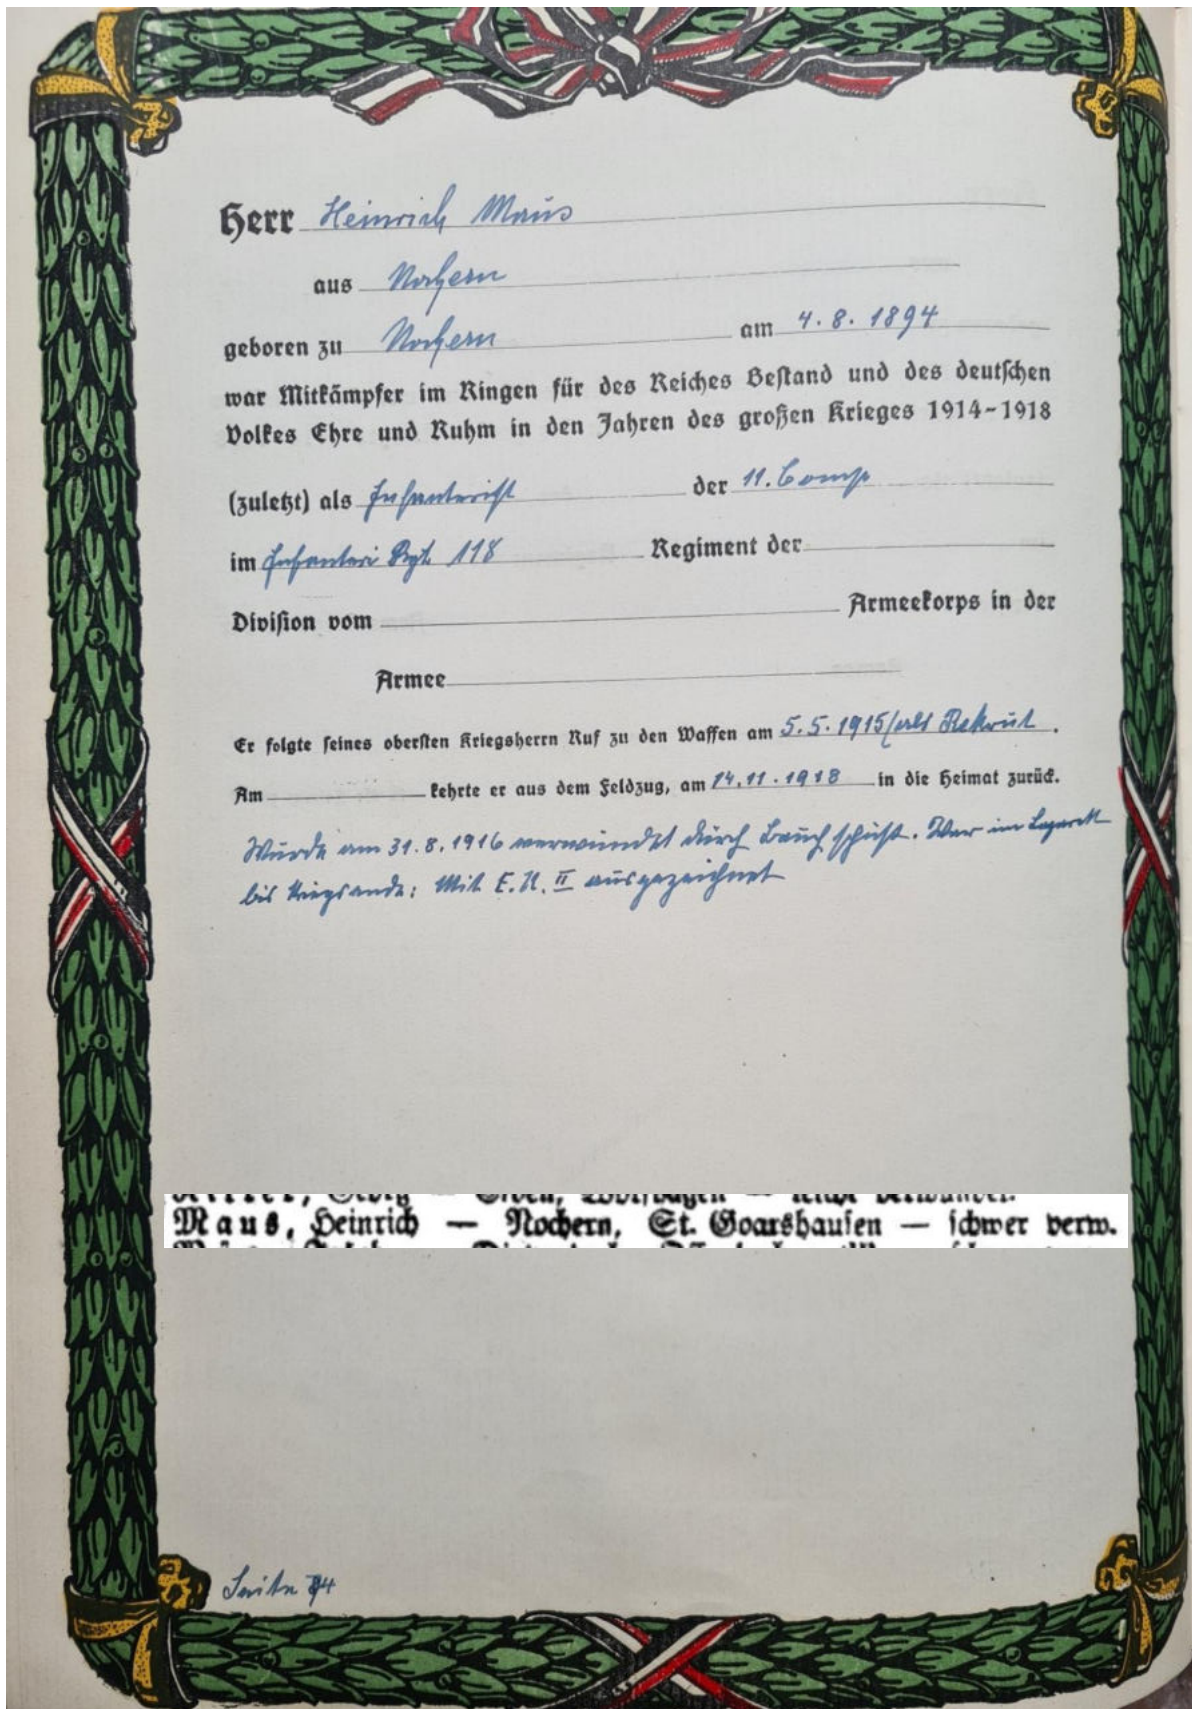 Herr Heinrich Maus
aus Nochern
geboren zu Nochern am 4.8.1894
war Mitkämpfer im Ringen für des Reiches Bestand und des deutschen
Volkes Ehre und Ruhm in den Jahren des großen Krieges 1914-1918
(zuletzt) als Infanterist der 11. Comp
im Infanteri Rgt. 118 Regiment der
Division vom Armeekorps in der
Armee
Er folgte seines obersten Kriegsherrn Ruf zu den Waffen am 5.5.1915/als Rekrut.
Am kehrte er aus dem Feldzug, am 14.11.1918 in die Heimat zurück.
Wurde am 31.8.1916 verwundet durch Bauchschuß. War im Lazarett
bis Kriegsende: Mit E.K. II ausgezeichnet
Maus, Heinrich — Nochern, St. Goarshausen — schwer verw.
Seite